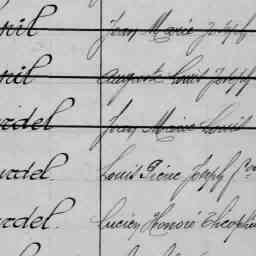 nil Jean Marie Joseph
nil Auguste Louis Joseph
rdel Jean Marie Louis
urdel Louis Pierre Joseph
rdel. Lucien Honoré Théophile